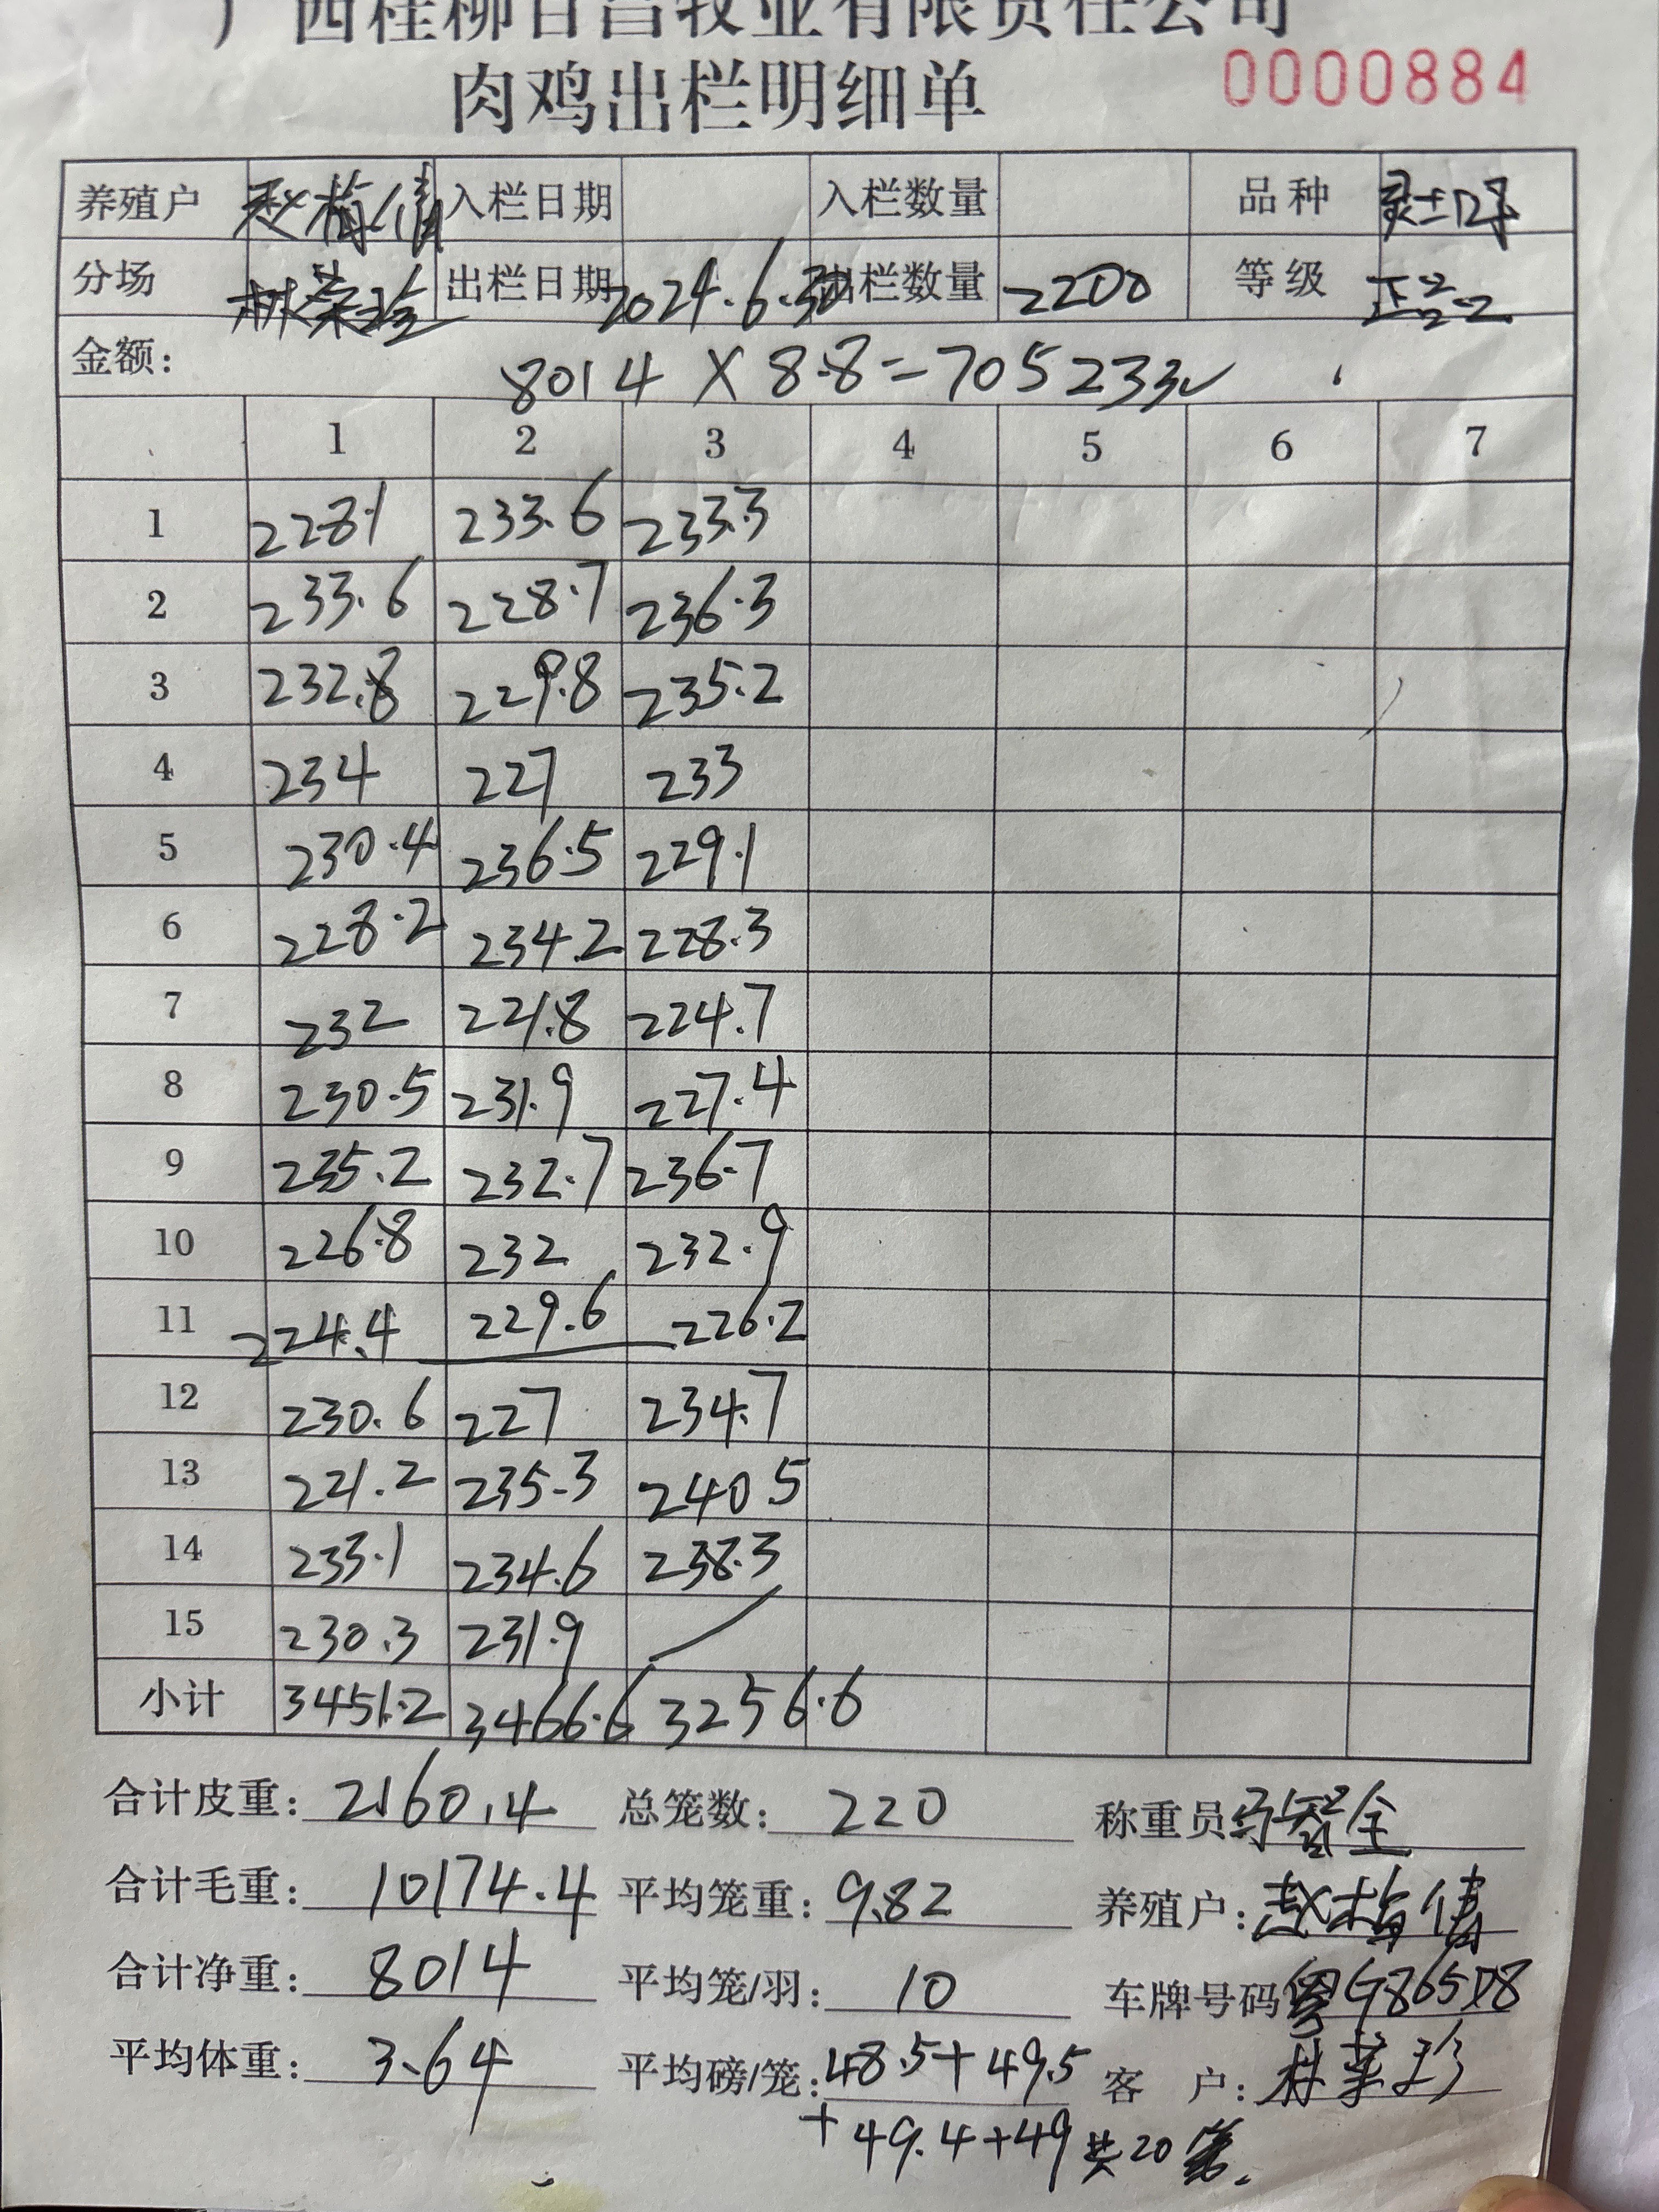 广西桂柳百昌牧业有限责任公司
肉鸡出栏明细单 0000884
养殖户 赵梅倩 入栏日期 入栏数量 品种
分场 林荣珍 出栏日期 2024.6.30 出栏数量 2200 等级
金额: 8014 × 8.8=705233
1 2 3 4 5 6 7
1 228.1 233.6 233.3
2 233.6 228.7 236.3
3 232.8 229.8 235.2
4 234 227 233
5 230.4 236.5 229.1
6 228.2 234.2 228.3
7 232 221.8 224.7
8 230.5 231.9 227.4
9 235.2 232.7 236.7
10 226.8 232 232.9
11 224.4 229.6 226.2
12 230.6 227 234.7
13 221.2 235.3 240.5
14 233.1 234.6 238.3
15 230.3 231.9
小计 3451.2 3466.6 3256.6
合计皮重: 2160.4 总笼数: 220 称重员
合计毛重: 10174.4 平均笼重: 9.82 养殖户: 赵梅倩
合计净重: 8014 平均笼/羽: 10 车牌号码 粤G865D8
平均体重: 3.64 平均磅/笼: 48.5+49.5 客 户: 林荣珍
+49.4+49 共20笼.